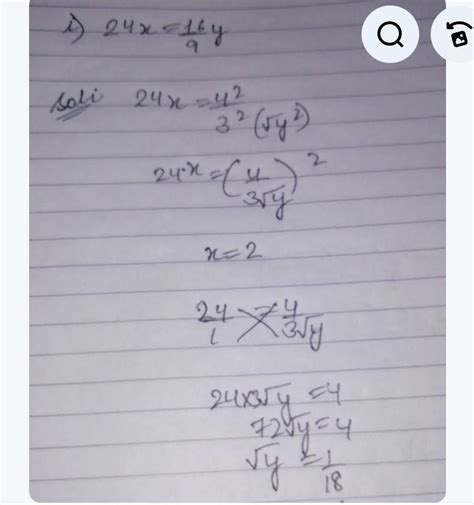 i) 24x = 16/9 y
Soli 24x = 4²/3²(√y²)
24^x = (4/3√y)²
x = 2
24/1 = 4/3√y
24x3√y = 4
72√y = 4
√y = 1/18